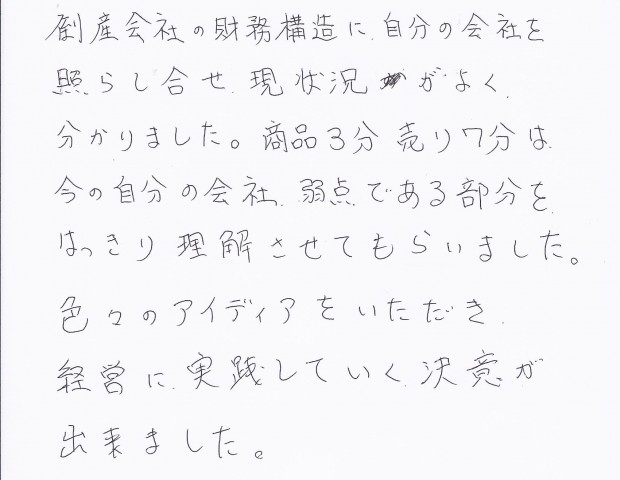 倒産会社の財務構造に、自分の会社を
照らし合せ、現状況がよく、
分かりました。商品3分売り7分は、
今の自分の会社、弱点である部分を、
はっきり理解させてもらいました。
色々のアイディアをいただき、
経営に、実践していく、決意が
出来ました。